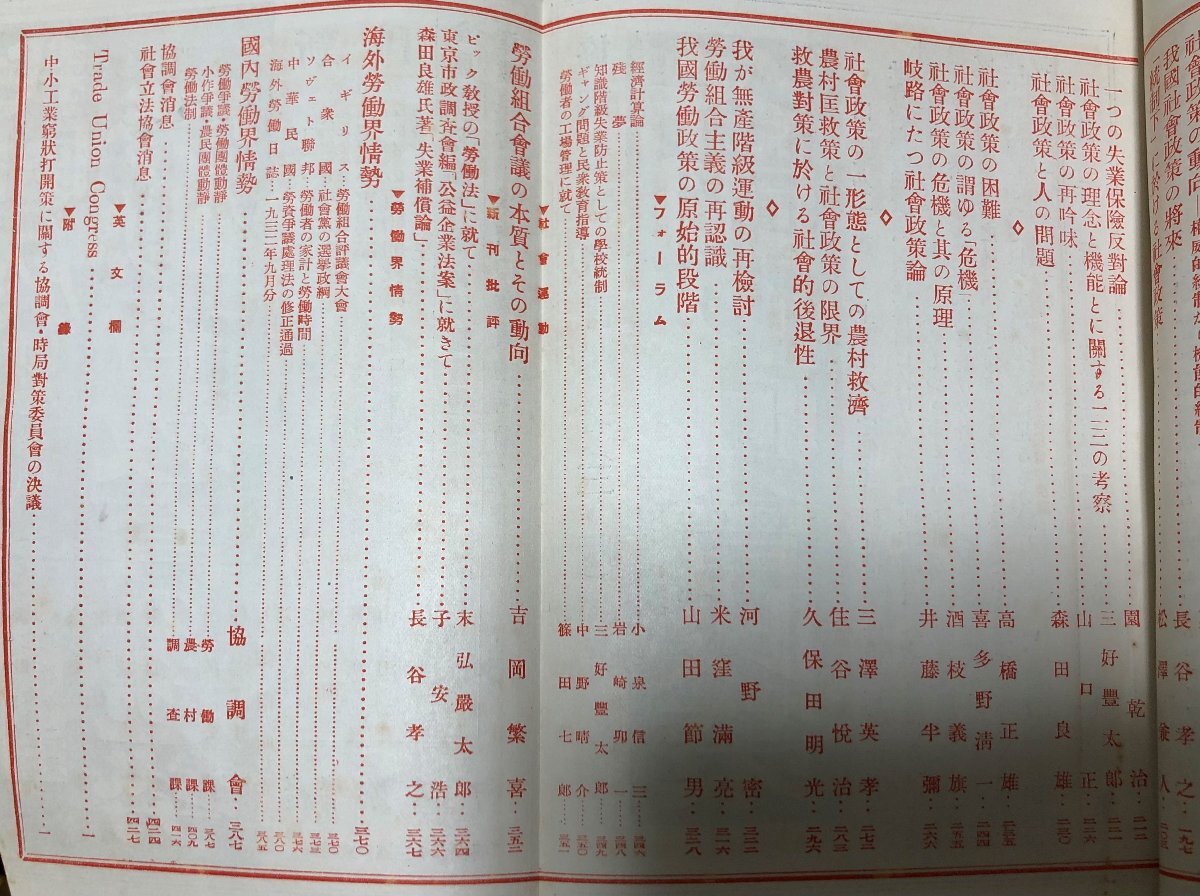 我國社會政策の將來……長谷孝之…一九七
「統制下」に於ける社會政策……松澤兼人…二〇五
一つの失業保險反對論……園乾治…二一三
社會政策の理念と機能とに關する一二の考察……三好豐太郎
社會政策の再吟味……山口正
社會政策と人の問題……森田良雄…二三〇
◇
社會政策の困難……高橋正雄…二三五
社會政策の謂ゆる「危機」……喜多野淸一…二四四
社會政策の危機と其の原理……酒枝義旗…二五五
岐路にたつ社會政策論……井藤半彌…二六六
◇
社會政策の一形態としての農村救濟……三澤英孝…二七三
農村匡救策と社會政策の限界……住谷悅治…二八三
救農對策に於ける社會的後退性……久保田明光…二九六
◇
我が無產階級運動の再檢討……河野密…三一二
勞働組合主義の再認識……米窪滿亮…三二六
我國勞働政策の原始的段階……山田節男…三二八
▼フォーラム
經濟計算論……小泉信三…三四六
殘夢……岩崎卯一…三四八
知識階級失業防止策としての學校統制……三好豐太郎…三四九
ギャング問題と民衆敎育指導……中野晴介…三五〇
勞働者の工場管理に就て……篠田七郎…三五一
▼社會運動
勞働組合會議の本質とその動向……吉岡繁喜…三五二
▼新刊批評
ピック敎授の「勞働法」に就て……末弘嚴太郎…三六四
東京市政調査會編「公益企業法案」に就きて……子安浩…三六六
森田良雄氏著「失業補償論」……長谷孝之…三六七
▼勞働界情勢
海外勞働界情勢……三七〇
イギリス・勞働組合評議會大會……三七〇
合衆國・社會黨の選擧政綱……三七三
ソヴェト聯邦・勞働者の家計と勞働時間……三七六
中華民國・勞資爭議處理法の修正通過……三八〇
海外勞働日誌・一九三二年九月分……三八五
國內勞働界情勢……協調會…三八七
勞働爭議・勞働團體動靜……勞働課…三八七
小作爭議・農民團體動靜……農村課…四〇九
勞働法制……調査課…四一六
協調會消息……四二四
社會立法協會消息……四二七
▼英文欄
Trade Union Congress……一
▼附錄
中小工業窮狀打開策に關する協調會・時局對策委員會の決議……一